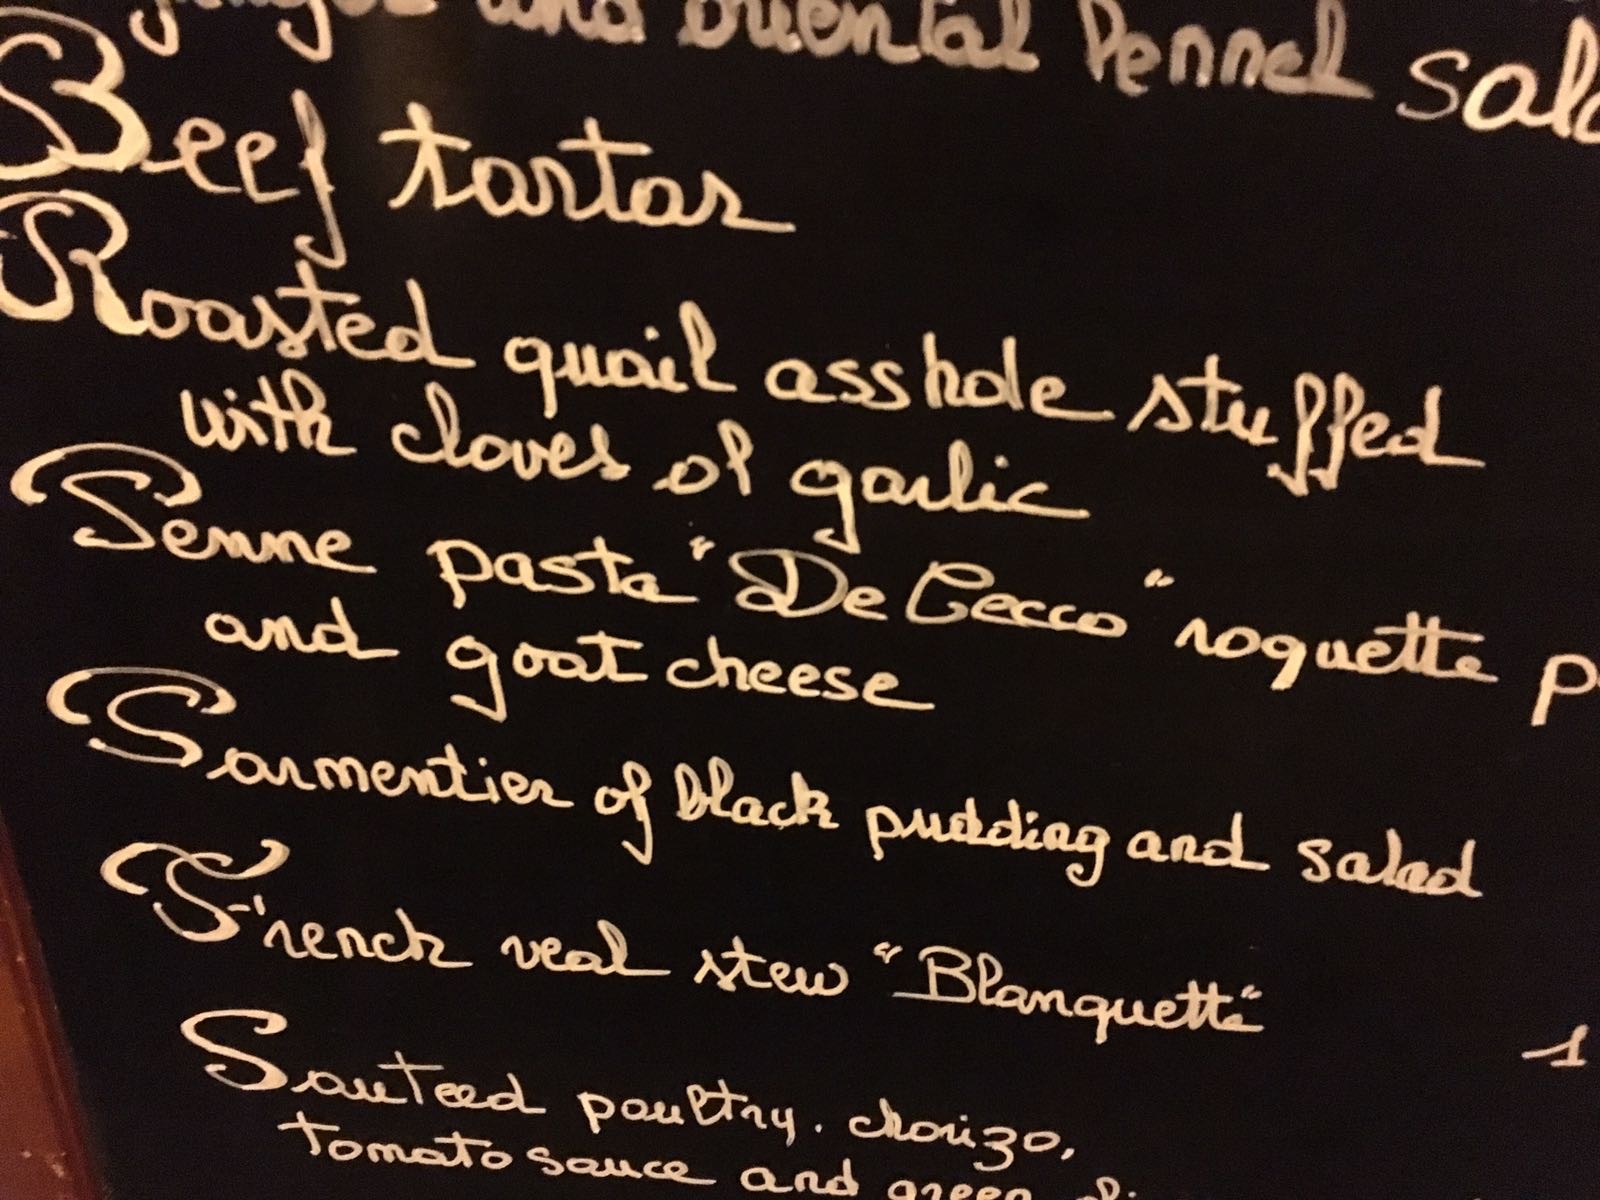 and oriental Pennel
Beef tartar
Roasted quail asshole stuffed
with cloves of garlic
Penne pasta "De Cecco" roquette
and goat cheese
Parmentier of black pudding and salad
French veal stew "Blanquette"
1
Sauteed poultry, chorizo,
tomato sauce and green